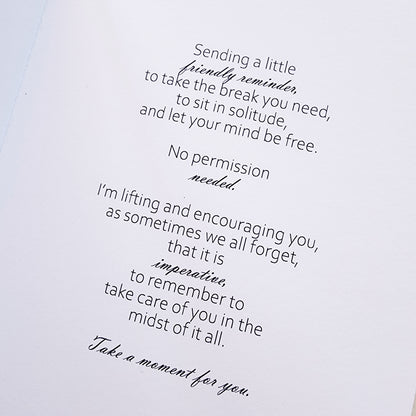 Sending a little
friendly reminder,
to take the break you need,
to sit in solitude,
and let your mind be free.
No permission
needed.
I'm lifting and encouraging you,
as sometimes we all forget,
that it is
imperative,
to remember to
take care of you in the
midst of it all.
Take a moment for you.